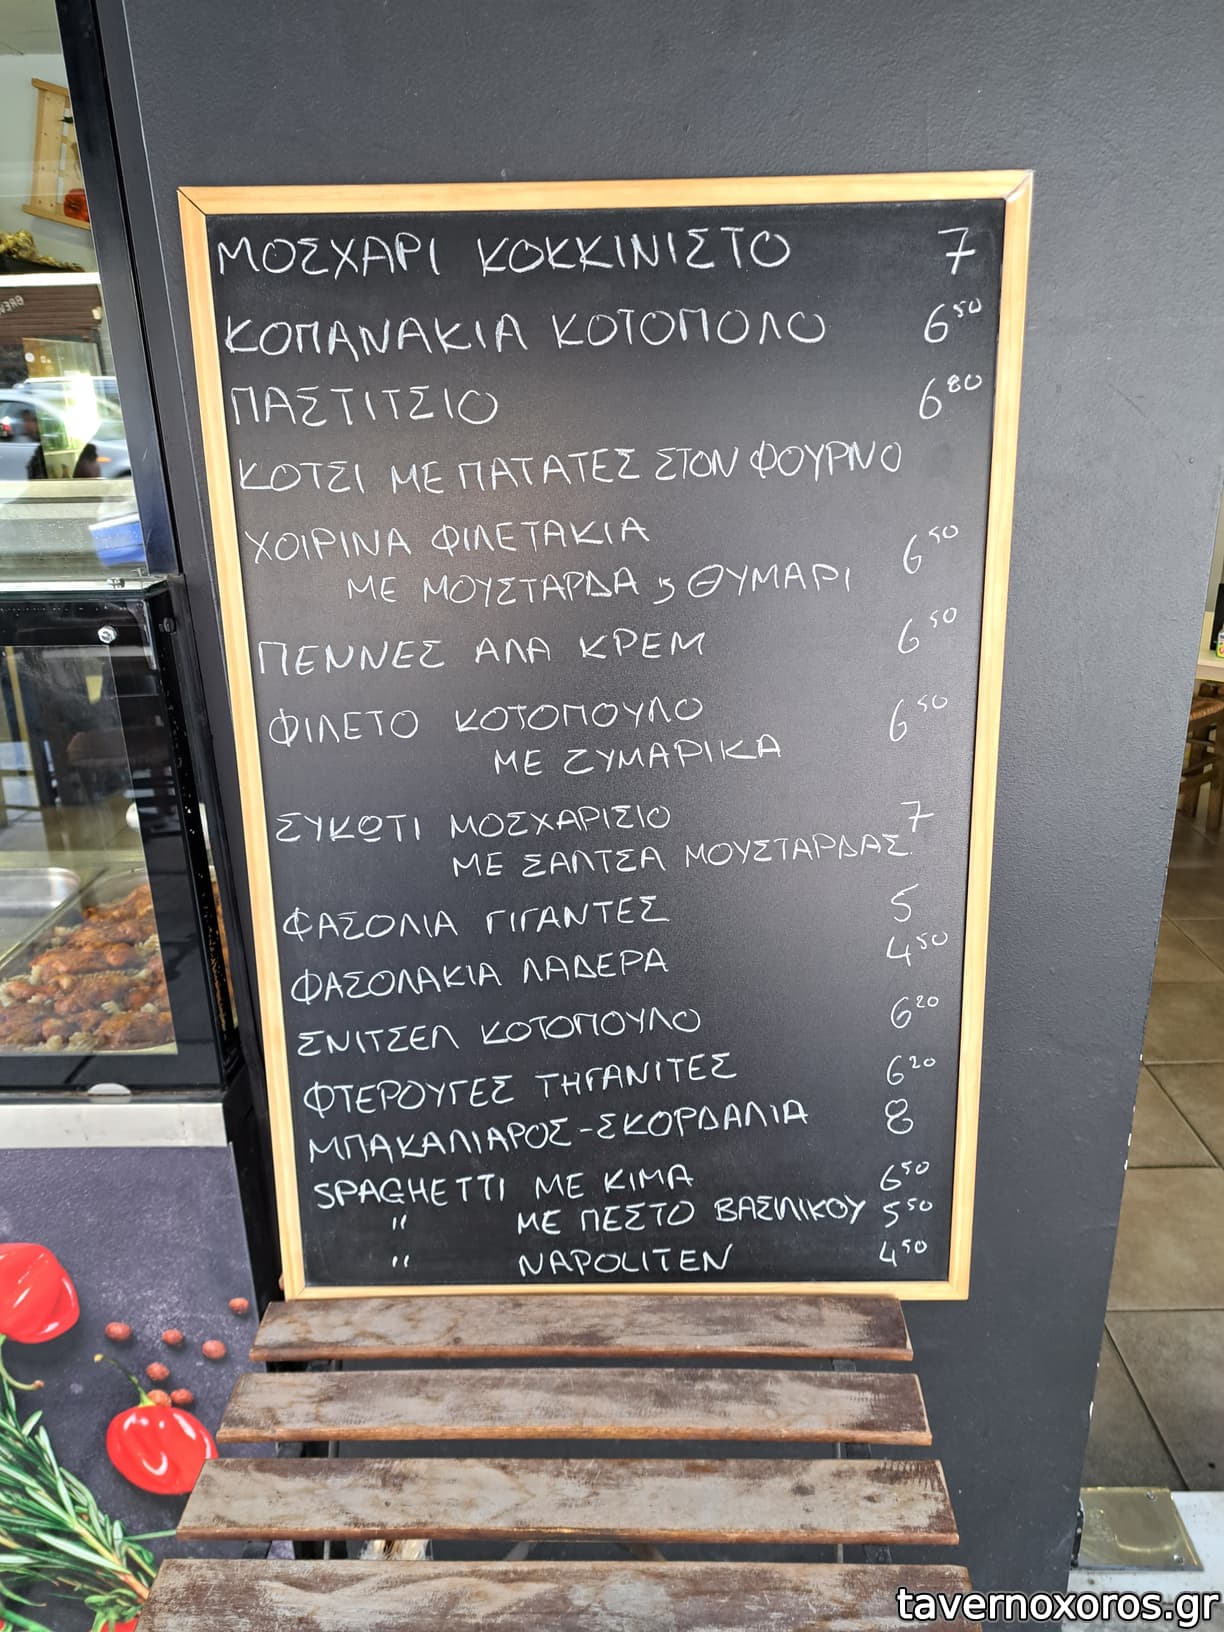 ΜΟΣΧΑΡΙ ΚΟΚΚΙΝΙΣΤΟ 7
ΚΟΠΑΝΑΚΙΑ ΚΟΤΟΠΟΛΟ 6⁵⁰
ΠΑΣΤΙΤΣΙΟ 6⁸⁰
ΚΟΤΣΙ ΜΕ ΠΑΤΑΤΕΣ ΣΤΟΝ ΦΟΥΡΝΟ
ΧΟΙΡΙΝΑ ΦΙΛΕΤΑΚΙΑ 6⁵⁰
ΜΕ ΜΟΥΣΤΑΡΔΑ ϗ ΘΥΜΑΡΙ
ΠΕΝΝΕΣ ΑΛΑ ΚΡΕΜ 6⁵⁰
ΦΙΛΕΤΟ ΚΟΤΟΠΟΥΛΟ 6⁵⁰
ΜΕ ΖΥΜΑΡΙΚΑ
ΣΥΚΩΤΙ ΜΟΣΧΑΡΙΣΙΟ 7
ΜΕ ΣΑΛΤΣΑ ΜΟΥΣΤΑΡΔΑΣ
ΦΑΣΟΛΙΑ ΓΙΓΑΝΤΕΣ 5
ΦΑΣΟΛΑΚΙΑ ΛΑΔΕΡΑ 4⁵⁰
ΣΝΙΤΣΕΛ ΚΟΤΟΠΟΥΛΟ 6²⁰
ΦΤΕΡΟΥΓΕΣ ΤΗΓΑΝΙΤΕΣ 6²⁰
ΜΠΑΚΑΛΙΑΡΟΣ-ΣΚΟΡΔΑΛΙΑ 8
SPAGHETTI ΜΕ ΚΙΜΑ 6⁵⁰
" ΜΕ ΠΕΣΤΟ ΒΑΣΙΛΙΚΟΥ 5⁵⁰
" NAPOLITEN 4⁵⁰
tavernoxoros.gr